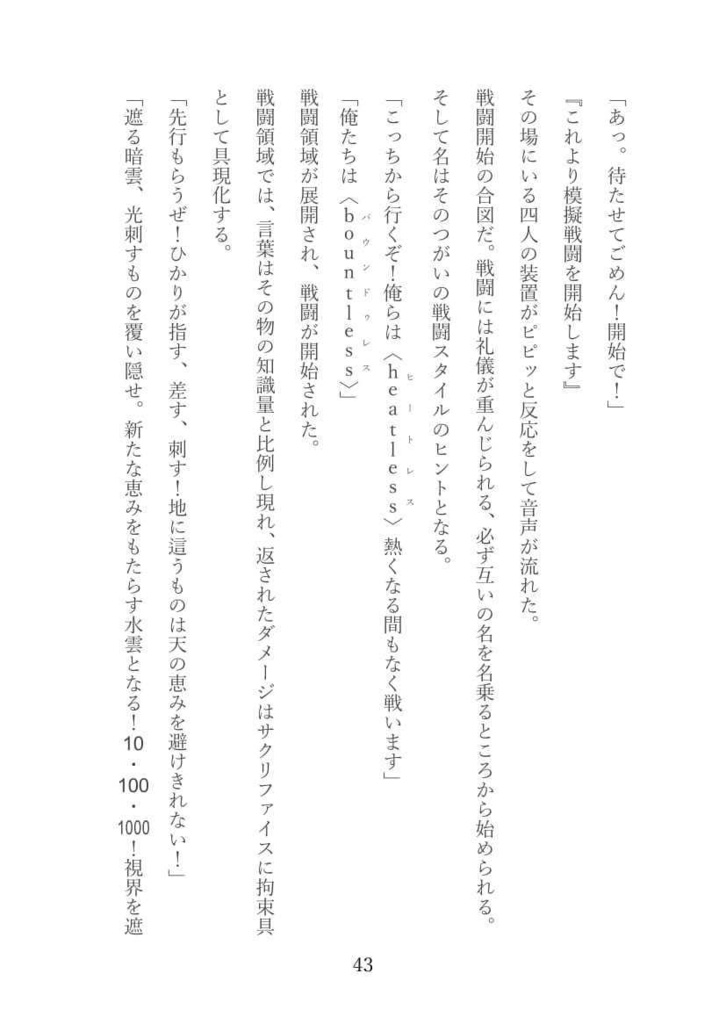 「あっ。待たせてごめん！開始で！」
『これより模擬戦闘を開始します』
その場にいる四人の装置がピピッと反応をして音声が流れた。
戦闘開始の合図だ。戦闘には礼儀が重んじられる、必ず互いの名を名乗るところから始められる。
そして名はそのつがいの戦闘スタイルのヒントとなる。
「こっちから行くぞ！俺らは〈heatless〉熱くなる間もなく戦います」
ヒートレス
「俺たちは〈bountless〉」
バウンドゥレス
戦闘領域が展開され、戦闘が開始された。
戦闘領域では、言葉はその物の知識量と比例し現れ、返されたダメージはサクリファイスに拘束具
として具現化する。
「先行もらうぜ！ひかりが指す、差す、刺す！地に這うものは天の恵みを避けきれない！」
「遮る暗雲、光刺すものを覆い隠せ。新たな恵みをもたらす水雲となる！10・100・1000！視界を遮
43